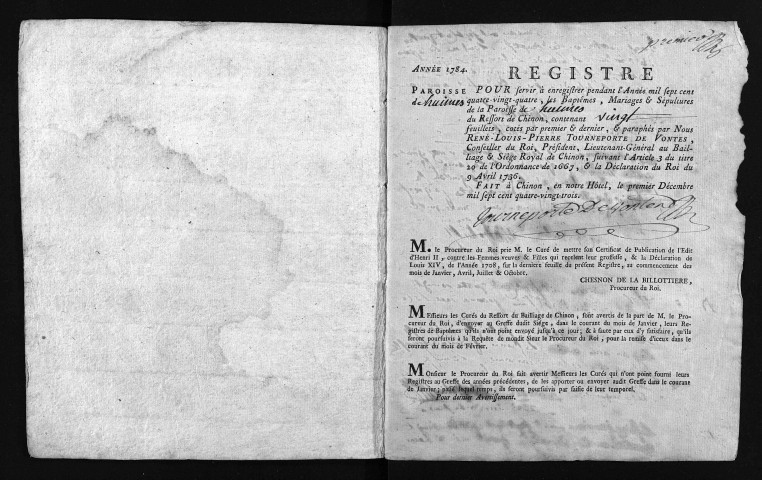 premier
ANNÉE 1784. REGISTRE
PAROISSE de huimes
POUR servir à enregistrer pendant l'Année mil sept cent
quatre-vingt-quatre, les Baptêmes, Mariages & Sépultures
de la Paroisse de huimes
du Ressort de Chinon, contenant vingt
feuillets, cotés par premier & dernier, & paraphés par Nous
RENÉ-LOUIS-PIERRE TOURNEPORTE DE VONTES,
Conseiller du Roi, Président, Lieutenant-Général au Bail-
liage & Siége Royal de Chinon, suivant l'Article 3 du titre
20 de l'Ordonnance de 1667, & la Déclaration du Roi du
9 Avril 1736.
FAIT à Chinon, en notre Hôtel, le premier Décembre
mil sept cent quatre-vingt-trois.
Tourneporte De Vontes
M. le Procureur du Roi prie M. le Curé de mettre son Certificat de Publication de l'Edit
d'Henri II, contre les Femmes veuves & Filles qui recelent leur grossesse, & la Déclaration de
Louis XIV, de l'Année 1708, sur la derniere feuille du présent Registre, au commencement des
mois de Janvier, Avril, Juillet & Octobre.
CHESNON DE LA BILLOTTIERE,
Procureur du Roi.
MEssieurs les Curés du Ressort du Bailliage de Chinon, sont avertis de la part de M. le Pro-
cureur du Roi, d'envoyer au Greffe dudit Siége, dans le courant du mois de Janvier, leurs Re-
gistres de Baptêmes qu'ils n'ont point envoyé jusqu'à ce jour; & à faute par eux d'y satisfaire, qu'ils
seront poursuivis à la Requête de mondit Sieur le Procureur du Roi, pour la remise d'iceux dans le
courant du mois de Février.
MOnsieur le Procureur du Roi fait avertir Messieurs les Curés qui n'ont point fourni leurs
Registres au Greffe des années précédentes, de les apporter ou envoyer audit Greffe dans le courant
de Janvier; passé lequel temps, ils seront poursuivis par saisie de leur temporel.
Pour dernier Avertissement.